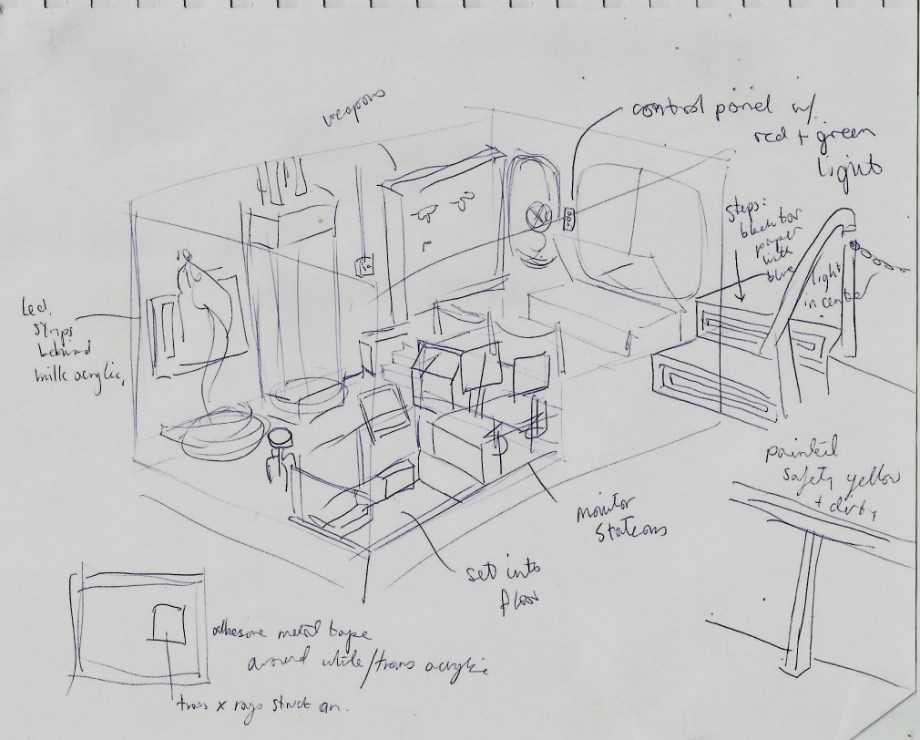 weapons
control panel w/
red + green
light
Steps:
black bar
paper
with
blue
light
in centre
led
strips
behind
milk acrylic,
painted
safety yellow
+ dirty
monitor
stations
set into
floor
adhesive metal tape
around white/trans acrylic
trans x rays stuck on.